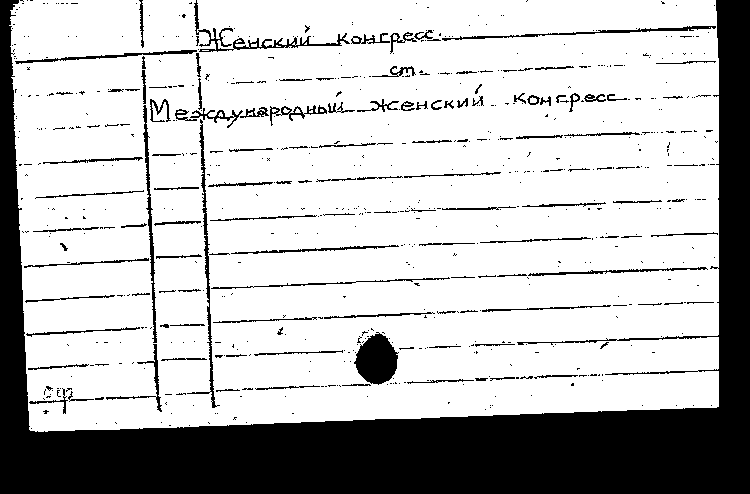 Женский конгресс.
ст.
Международный женский конгресс